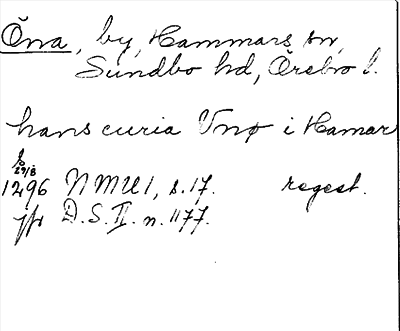 Öna, by, Hammars sn,
Sundbo hd, Örebro l.
hans curia Vnø i Hamar
29/8
1296 NMU 1, s. 17. regest.
jfr D.S. II. n. 1177.